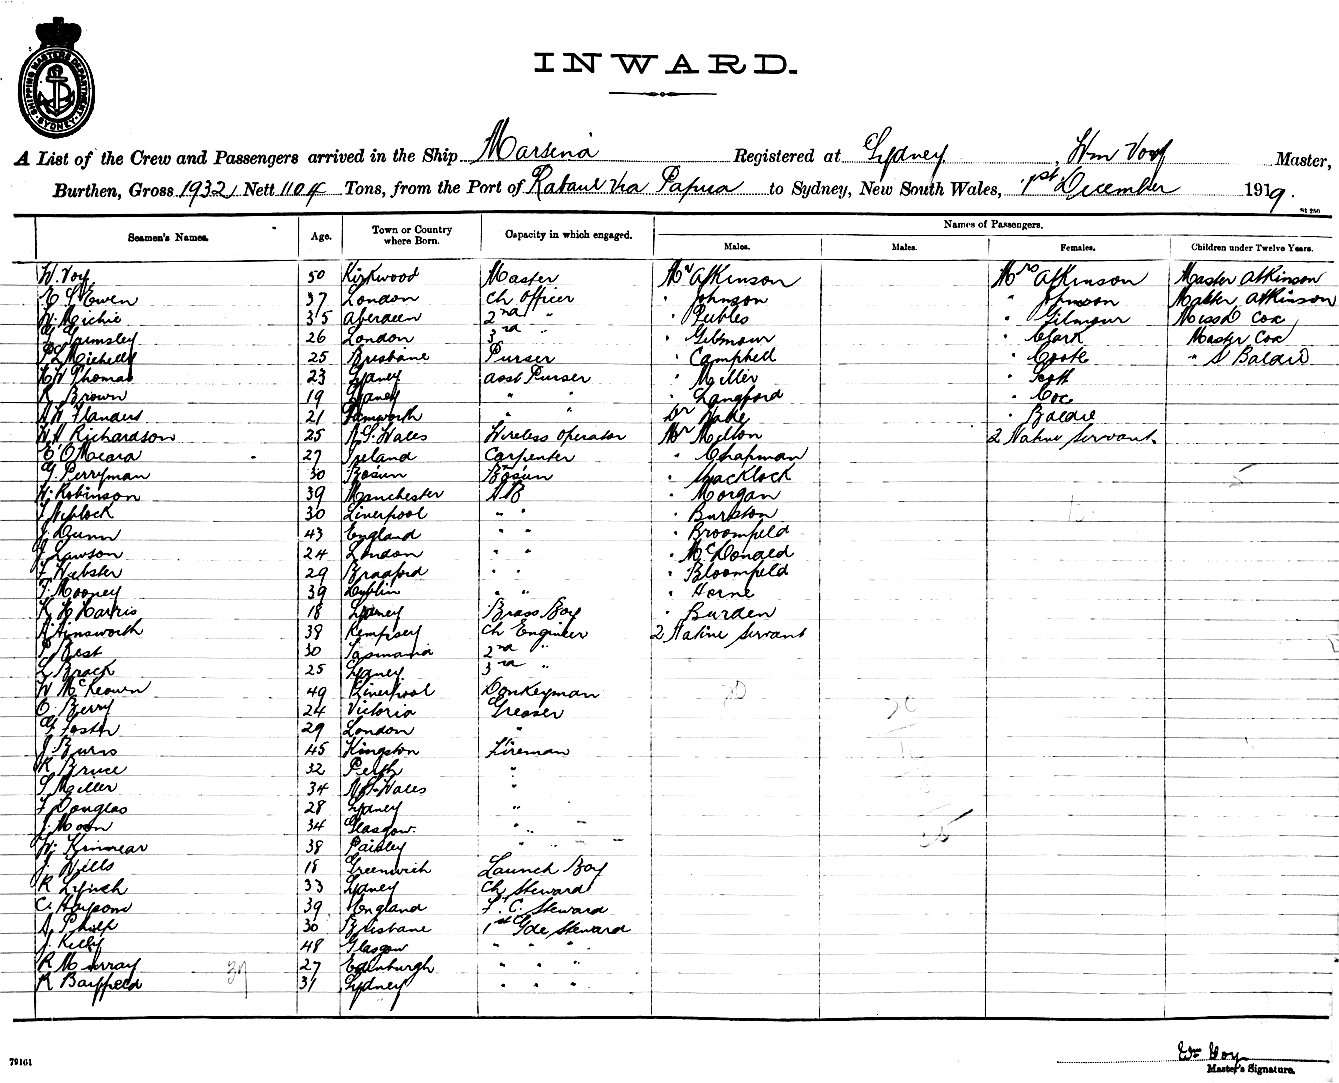 SHIPPING MASTERS DEPARTMENT SYDNEY
INWARD.
A List of the Crew and Passengers arrived in the Ship Marsina Registered at Sydney, Wm Voy Master,
Burthen, Gross 1932 Nett 1104 Tons, from the Port of Rabaul via Papua to Sydney, New South Wales, 1st December 1919.
Names of Passengers.
Seamen's Names. Age. Town or Country where Born. Capacity in which engaged. Males. Males. Females. Children under Twelve Years.
W. Voy 50 Kirkwood Master Mr Atkinson Mrs Atkinson Master Atkinson
37 London Ch Officer " Johnson " Johnson Master Atkinson
W. Michie 35 Aberdeen 2nd " " Peebles " Gilmour Miss D Cox
26 London 3rd " " Gilmour " Clark Master Cox
25 Brisbane Purser " Campbell " Cooke " S Baldie
Thomas 23 Sydney asst Purser " Miller " Scott
R Brown 19 Sydney " " " Langford " Cox
Flanders 21 Tamworth " " Dr " Baldie
W. H Richardson 25 N. S. Wales Wireless Operator Mr Melton 2 Native Servant.
E O'Meara 27 Ireland Carpenter " Chapman
G. Perryman 30 Bosun Bosun " Macklock
W. Robinson 39 Manchester A B " Morgan
F Niblock 30 Liverpool " " " Burston
J. Dunn 43 England " " " Broomfield
J. Lawson 24 London " " " McDonald
F Webster 29 Bradford " " " Bloomfield
T. Mooney 39 Dublin " " " Horne
Harris 18 Sydney Brass Boy " Burden
A Ainsworth 38 Kempsey Ch Engineer 2 Native Servant
Best 30 Tasmania 2nd "
L Brack 25 Sydney 3rd "
W McKeown 49 Liverpool Donkeyman
O Berry 24 Victoria Greaser
G. Foster 29 London "
J. Burns 45 Kingston Fireman
R Bruce 32 Perth "
S Miller 34 N. S. Wales "
F Douglas 28 Sydney "
J. Moon 34 Glasgow "
W. Kinnear 38 Paisley "
J. Wills 18 Greenwich Launch Boy
R Lynch 33 Sydney Ch Steward
C. 39 England F. C. Steward
A Philp 30 Brisbane 1st Gde Steward
J. Kelly 48 Glasgow " " "
R Murray 27 Edinburgh " " "
R Bayfield 31 Sydney " " "
37
20
Wm Voy
Master's Signature.
79161